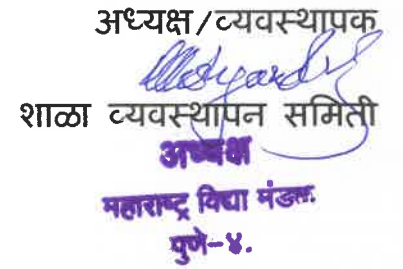 अध्यक्ष/व्यवस्थापक
शाळा व्यवस्थापन समिती
अध्यक्ष
महाराष्ट्र विद्या मंडल.
पुणे-४.